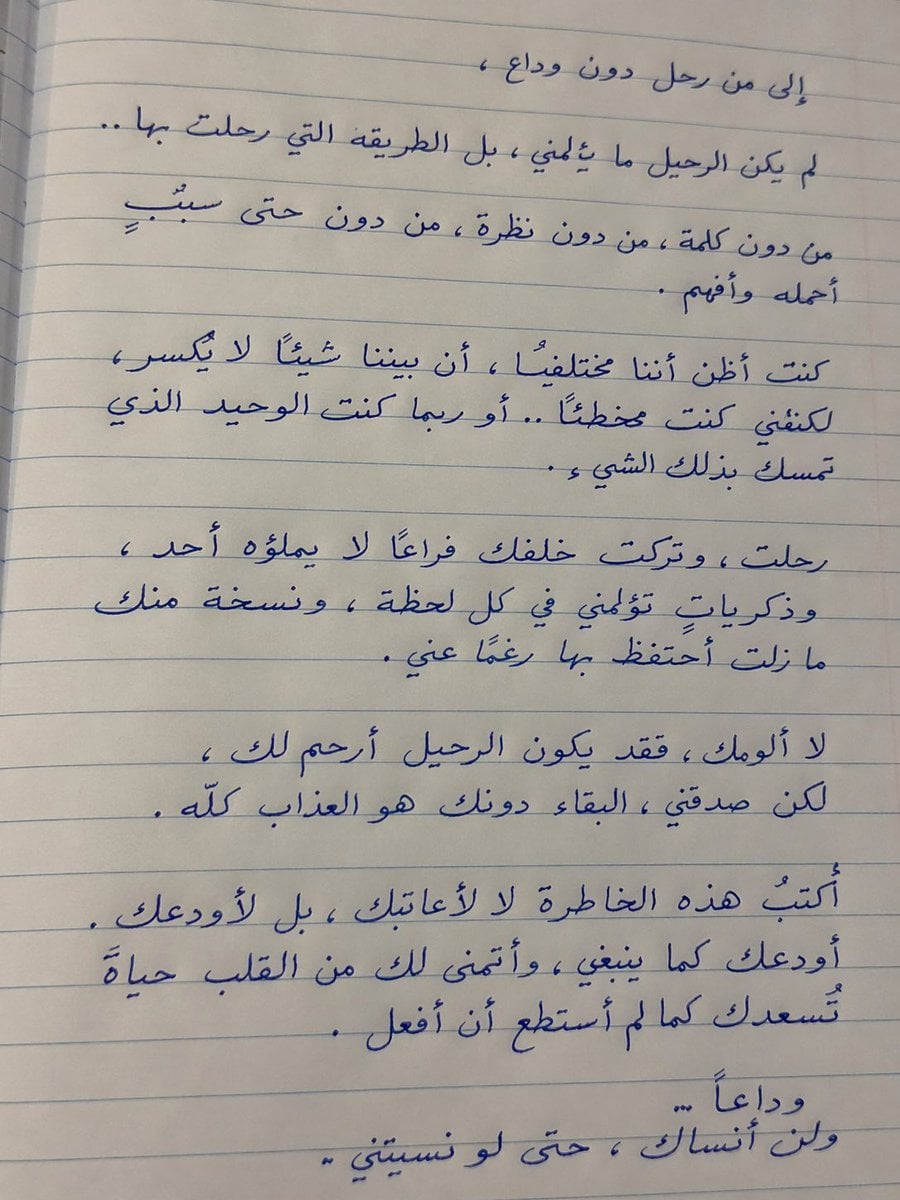 إلى من رحل دون وداع ،
لم يكن الرحيل ما يؤلمني ، بل الطريقه التي رحلت بها ..
من دون كلمة ، من دون نظرة ، من دون حتى سببٍ
أحمله وأفهم .
كنت أظن أننا مختلفينا ، أن بيننا شيئًا لا يُكسر ،
لكنني كنت مخطئًا .. أو ربما كنت الوحيد الذي
تمسك بذلك الشيء .
رحلت ، وتركت خلفك فراعًا لا يملؤه أحد ،
وذكرياتٍ تؤلمني في كل لحظة ، ونسخة منك
ما زلت أحتفظ بها رغمًا عني .
لا ألومك ، فقد يكون الرحيل أرحم لك ،
لكن صدقني ، البقاء دونك هو العذاب كلّه .
أكتبُ هذه الخاطرة لا لأعاتبك ، بل لأودعك .
أودعك كما ينبغي ، وأتمنى لك من القلب حياةً
تُسعدك كما لم أستطع أن أفعل .
وداعاً ..
ولن أنساك ، حتى لو نسيتني ..